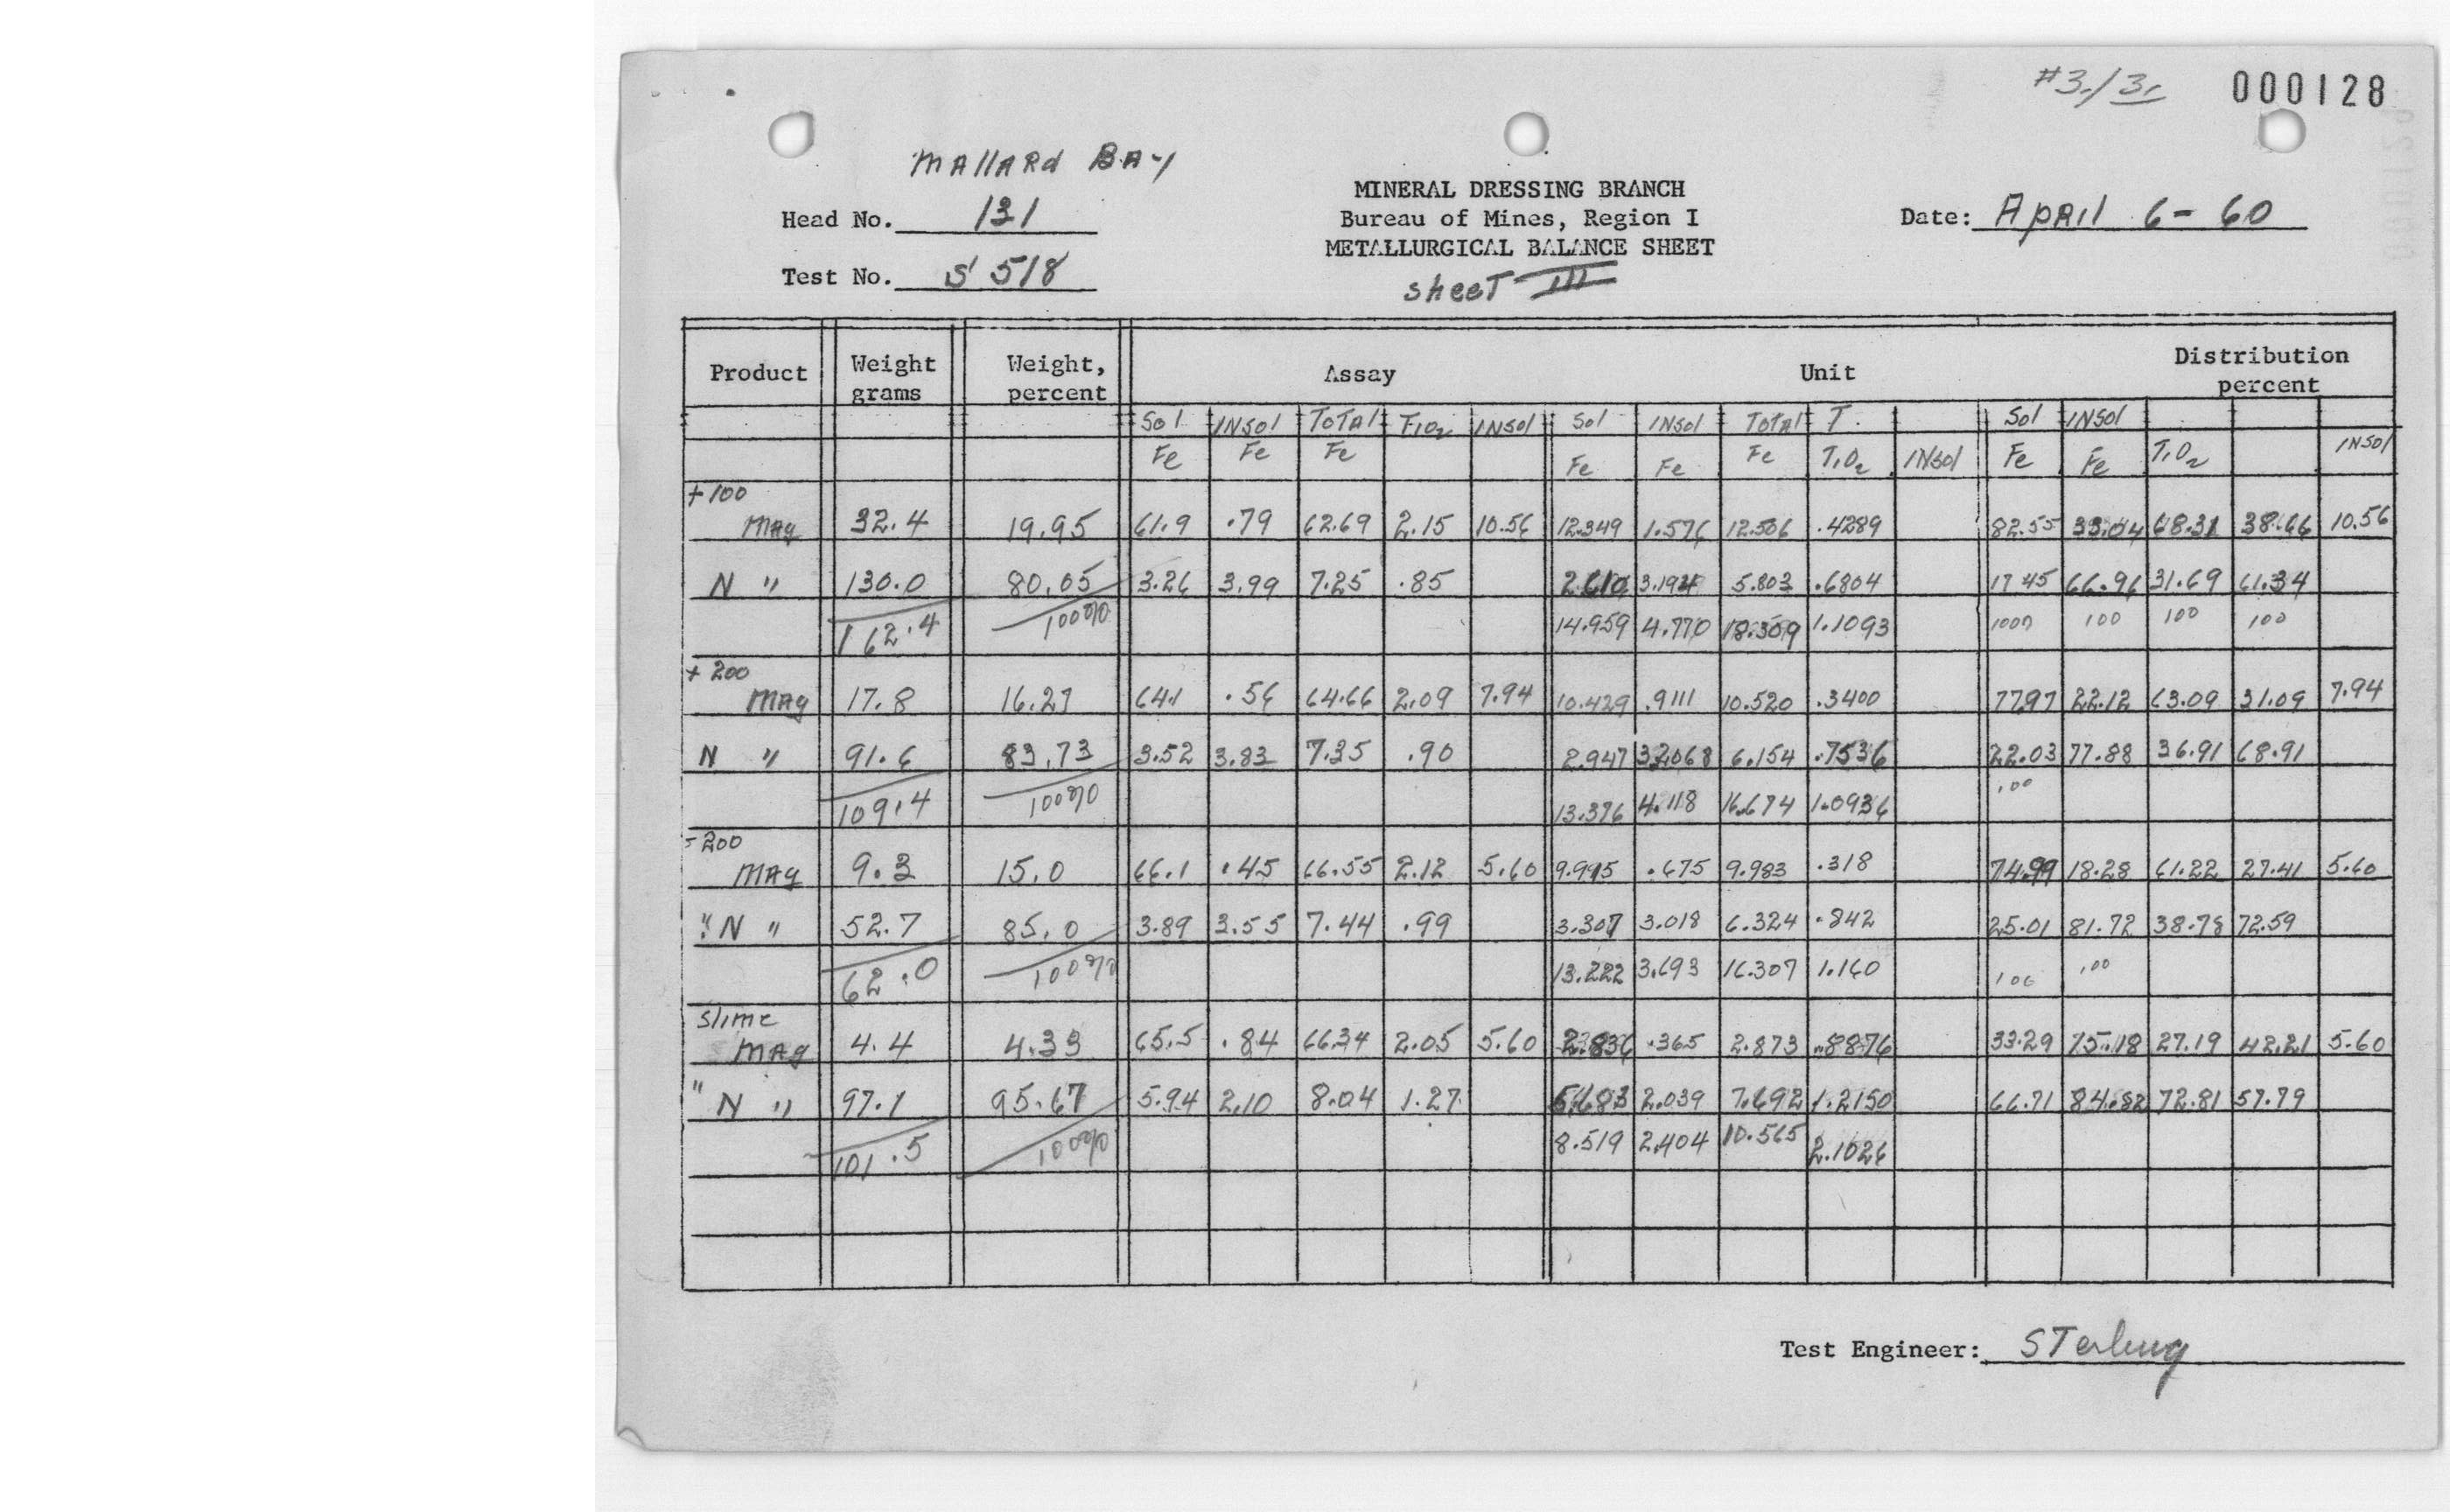 #3./3. 000128
MALLARD BAY
Head No. 131
Test No. S 518
MINERAL DRESSING BRANCH
Bureau of Mines, Region I
METALLURGICAL BALANCE SHEET
sheet III
Date: April 6-60
Product Weight grams Weight, percent Assay Unit Distribution percent
Sol INSol TOTAl Tio2 INSol Sol INSol TOTAl T. Sol INSol
Fe Fe Fe Fe Fe Fe TiO2 INSol Fe Fe TiO2 INSol
+100
Mag 32.4 19.95 61.9 .79 62.69 2.15 10.56 12.349 1.576 12.506 .4289 82.55 33.04 68.31 38.66 10.56
N " 130.0 80.05 3.26 3.99 7.25 .85 2.610 3.194 5.803 .6804 17 45 66.96 31.69 61.34
162.4 100% 14.959 4.770 18.309 1.1093 100 100 100
+200
MAg 17.8 16.27 64.1 .56 64.66 2.09 7.94 10.429 .9111 10.520 .3400 77.97 22.12 63.09 31.09 7.94
N " 91.6 83.73 3.52 3.83 7.35 .90 2.947 6.154 .7536 22.03 77.88 36.91 68.91
109.4 100% 13.376 4.118 16.674 1.0936 100
-200
MAg 9.3 15.0 66.1 .45 66.55 2.12 5.60 9.915 .675 9.983 .318 74.99 18.28 61.22 27.41 5.60
" N " 52.7 85.0 3.89 3.55 7.44 .99 3.307 3.018 6.324 .842 25.01 81.72 38.78 72.59
62.0 100% 13.222 3.693 16.307 1.160 100 100
slime
MAg 4.4 4.33 65.5 .84 66.34 2.05 5.60 2.836 .365 2.873 .8876 33.29 15.18 27.19 42.21 5.60
" N " 97.1 95.67 5.94 2.10 8.04 1.27 5.683 2.039 7.692 1.2150 66.71 84.82 72.81 57.79
101.5 100% 8.519 2.404 10.565 2.1026
Test Engineer: Sterling